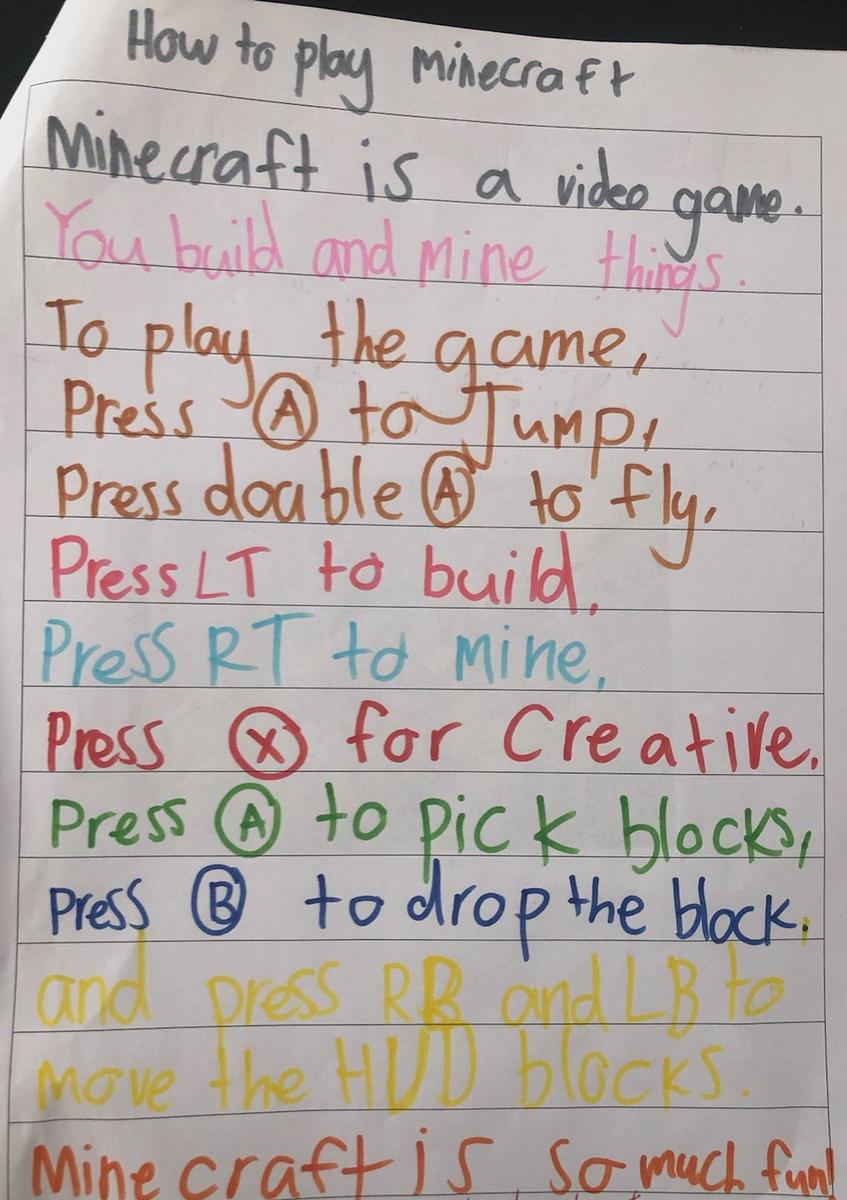 How to play minecraft
Minecraft is a video game.
You build and mine things.
To play the game,
Press A to Jump,
Press double A to fly,
Press LT to build,
Press RT to mine,
Press X for Creative.
Press A to pick blocks,
press B to drop the block.
and press RB and LB to
move the HUD blocks.
Minecraft is so much fun!